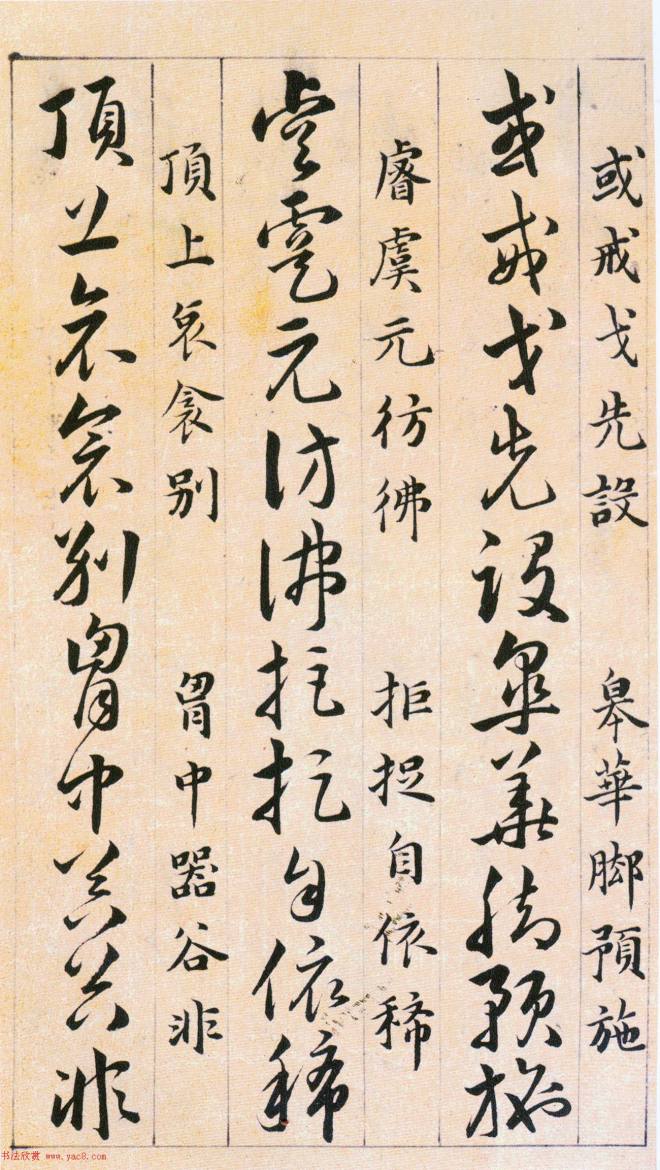 或戒戈先設 臯華脚預施
或戒戈先設臯華脚預施
睿虞元彷彿 拒捉自依稀
睿虞元彷彿拒捉自依稀
頂上哀衾别 胷中器谷非
頂上哀衾别胷中器谷非
书法欣赏 www.yac8.com